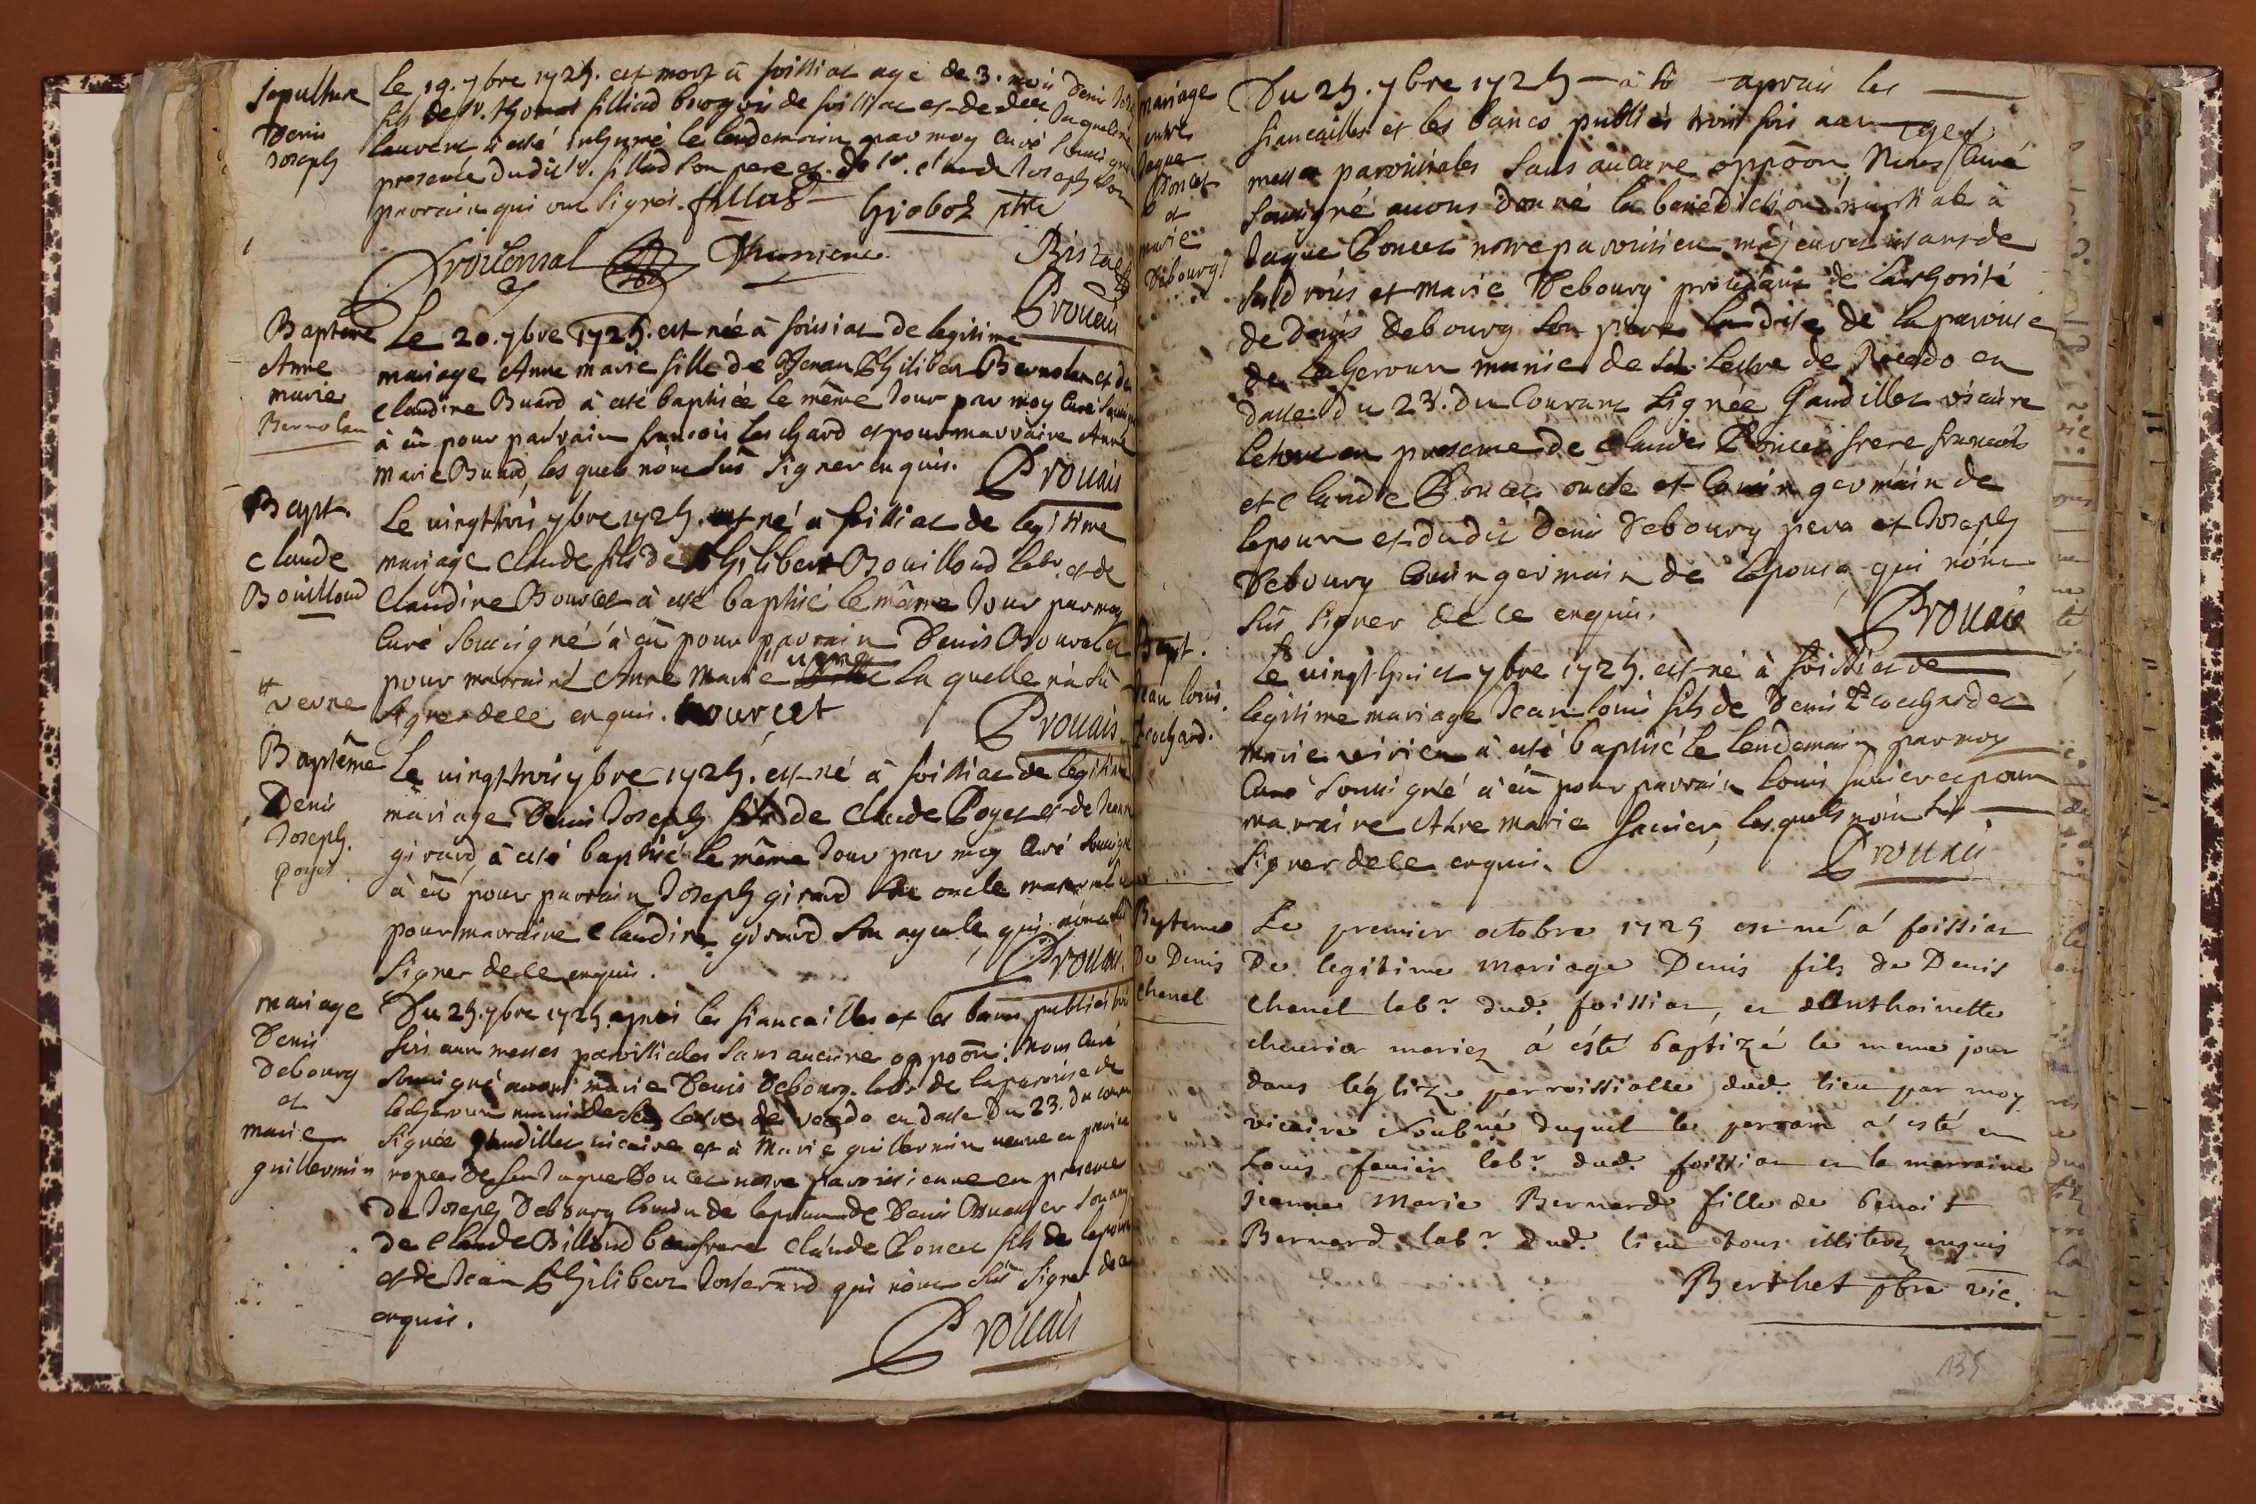 Sepulture
Denis
Joseph
Le 19. 7bre 1725. est mort à foissiat agé de 3. mois Denis
fils de Sr. thomas filliad bourgois de foissiat et de delle Jaqueline
laurent à esté inhumé le lendemain par moy curé
presence dudit Sr. filliad son pere et de Sr. claude Joseph
parrain qui ont signés. filliad
ptre
Prouais
Baptême
Anne
marie
Bernolan
Le 20. 7bre 1725. est née à foissiat de legitime
mariage Anne marie fille de Jean Philibert Bernolan et de
claudine Buard à esté baptisée le même Jour par moy Curé
à eû pour parrain francois cochard et pour marraine Anne
Marie Buard, les quels n'ont sus signer enquis. Prouais
Bapt.
claude
Bouilloud
Le vingt trois 7bre 1725. est né a foissiat de legitime
mariage Claude fils de Philibert Bouilloud labr. et de
Claudine Bourcet à esté baptisé le même Jour par moy
Curé soussigné à eû pour parrain Denis Bourcet et
pour marraine Anne Marie verne la quelle n'a sû
signer de ce enquis. bourcet Prouais
verne
Baptême
Denis
Joseph
poget
Le vingt trois 7bre 1725. est né à foissiat de legitime
mariage Denis Joseph fils de Claude Poget et de Jeanne
girard, à esté baptisé le même Jour par moy Curé
à eû pour parrain Joseph girard son oncle maternel
pour marraine Claudine girard son ayeule qui n'ont sus
signer de ce enquis. Prouais
mariage
Denis
Debourg
et
marie
guillermin
Du 25. 7bre 1725. aprés les fiancailles et les bancs publiés
fois aux messes paroissiales sans aucune oppoōn. Nous Curé
soussigné avons marié Denis Debourg labr. de la paroisse de
lescheroux muni de sa lettre de recedo en datte du 23. du courant
signée Gaudillet vicaire et à Marie guillermin veuve en
nopces de feu Jaque Poncet notre paroissienne en presence
de Joseph Debourg cousin de lepoux de Denis
de Claude Billoud beaufrere claude Poncet fils de lepouse
et de Jean Philibert Josserand qui n'ont sus signer de ce
enquis.
Prouais
mariage
entre
Jaque
Poncet
et
marie
Debourg
Du 25. 7bre 1725 aprais les
fiancailles et les bancs publiés trois fois aux
messes paroissiales sans aucune oppoōn Nous Curé
soussigné avons donné la benediction nuptiale à
Jaque Poncet notre paroissien
et marie Debourg procédant de lauthorité
de Denis debourg son pere la dite de la paroisse
de Lescheroux munie de sa lettre de Recedo en
datte du 23. du courant signée Gaudillet vicaire
le tout en presence de claude Poncet frere francois
et claude Poncet oncle et cousin germain de
lepoux et dudit Denis Debourg pere et Joseph
Debourg cousin germain de lepouse, qui n'ont
sûs signer de ce enquis.
Prouais
Bapt.
Jean louis
cochard.
Le vingt huict 7bre 1725. est né à foissiat de
legitime mariage Jean louis fils de Denis cochard et
marie à esté baptisé le lendemain par moy
Curé soussigné à eû pour parrain louis favier et pour
marraine Anne marie favier, les quels n'ont sus
signer de ce enquis.
Prouais
Bapteme
De Denis
chanel
Le premier octobre 1725 est né á foissiat
De legitime mariage Denis fils de Denis
chanel labr. dud. foissiat, et dAnthoinette
mariez á ésté baptizé le meme jour
dans léglize parroissialle dud. lieu par moy
vicaire soubné duquel le parrain á esté
Louis favier labr. dud. foissiat et la marraine
jeanne Marie Bernard fille de benoist
Bernard labr. dud. lieu tous illiterez enquis
Berthet pbre vic.
135